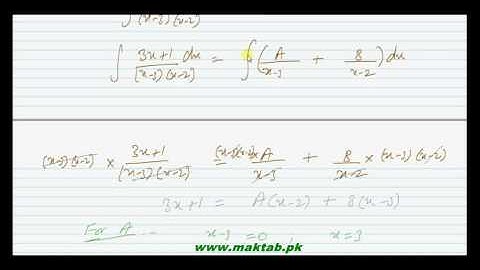 ∫ (x-3)(x-2)
∫ 3x+1/(x-3)(x-2) dx = ∫ (A/x-3 + 8/x-2) dx
(x-3)(x-2) × 3x+1/(x-3)(x-2) (x-3)(x-2)× A/x-3 + 8/x-2 × (x-3)(x-2)
3x+1 = A(x-2) + 8(x-3)
For A :- x-3=0, x=3
www.maktab.pk